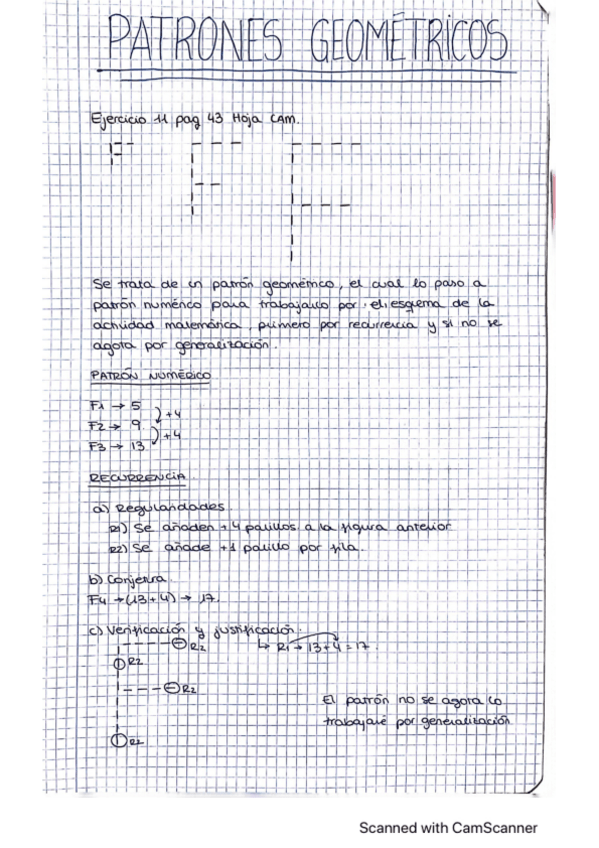 PATRONES GEOMÉTRICOS
Ejercicio 11 pag 43 Hoja CAM.
Se trata de un patrón geométrico, el cual lo paso a
patrón numérico para trabajarlo por el esquema de la
actividad matemática, primero por recurrencia y si no se
agota por generalización.
PATRÓN NUMÉRICO
F1 → 5
+4
F2 → 9
+4
F3 → 13
RECURRENCIA
a) Regularidades
R1) Se añaden +4 palillos a la figura anterior
R2) Se añade +1 palillo por fila.
b) Conjetura
F4 → (13+4) → 17.
c) Verificación y justificación.
R2 ↳ R1 → 13+4=17.
R2
R2
El patrón no se agota lo
trabajaré por generalización
R2
Scanned with CamScanner